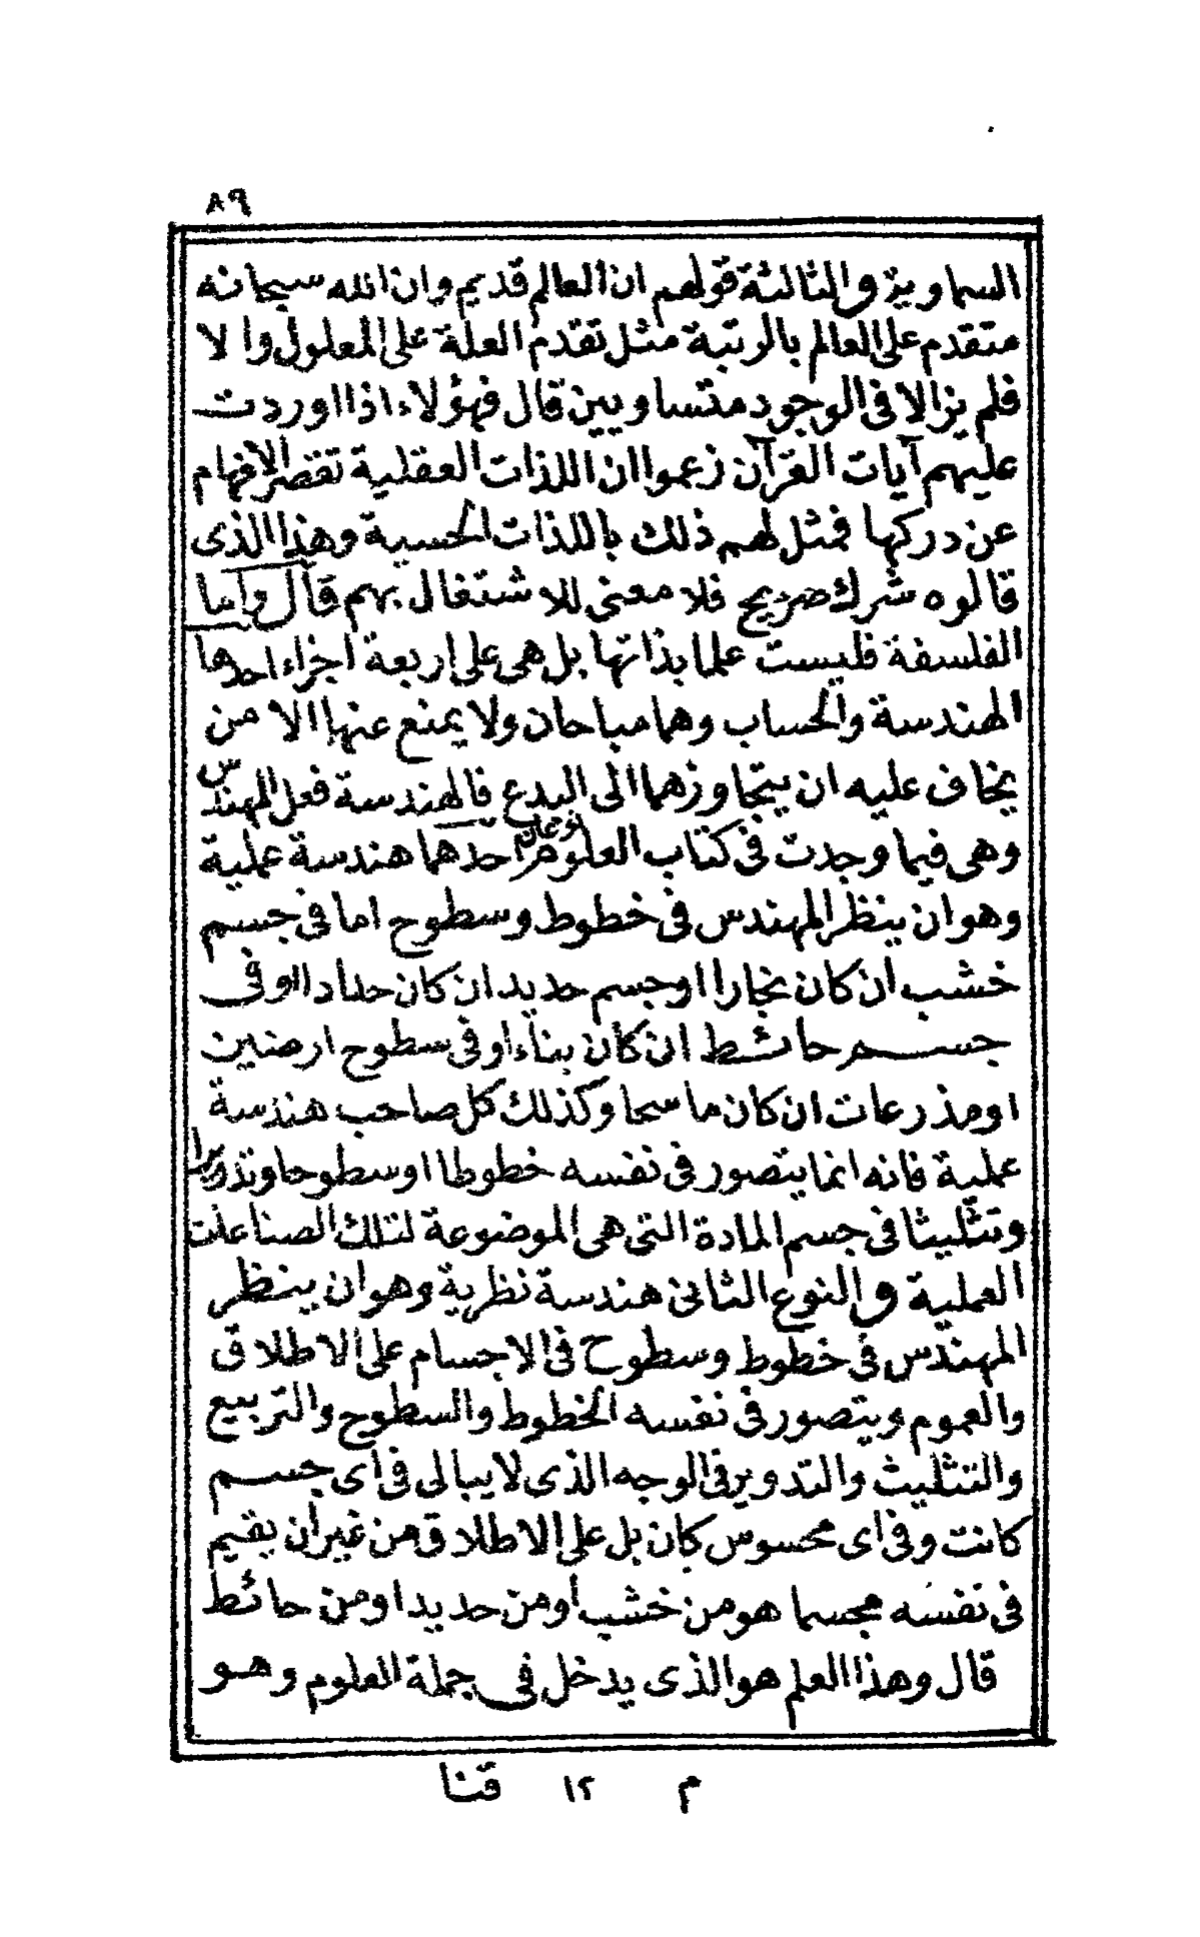 ٨٩
السماوية والثالثة قولهم ان العالم قديم وان الله سبحانه
متقدم على العالم بالرتبة مثل تقدم العلة على المعلول والا
فلم يزالا فى الوجود متساويين قال فهؤلاء اذا اوردت
عليهم آيات القرآن زعموا ان اللذات العقلية تقصر الافهام
عن دركها فمثل لهم ذلك باللذات الحسية وهذا الذى
قالوه شرك صريح فلا معنى للاشتغال بهم قال واما
الفلسفة فليست علما بذاتها بل هى على اربعة اجزاء احدها
الهندسة والحساب وهما مباحان ولا يمنع عنها الا من
يخاف عليه ان يتجاوزهما الى البدع فالهندسة فعل المهندس
وهى فيما وجدت فى كتاب العلوم نوعان احدهما هندسة عملية
وهو ان ينظر المهندس فى خطوط وسطوح اما فى جسم
خشب ان كان نجارا او جسم حديد ان كان حدادا او فى
جسم حائط ان كان بناء او فى سطوح ارضين
او مذرعات ان كان ماسحا وكذلك كل صاحب هندسة
عملية فانه انما يتصور فى نفسه خطوطا او سطوحا وتدويرا
وتثليثا فى جسم المادة التى هى الموضوعة لتلك الصناعات
العملية والنوع الثانى هندسة نظرية وهو ان ينظر
المهندس فى خطوط وسطوح فى الاجسام على الاطلاق
والعموم ويتصور فى نفسه الخطوط والسطوح والتربيع
والتثليث والتدوير فى الوجه الذى لا يبالى فى اى جسم
كانت وفى اى محسوس كان بل على الاطلاق من غير ان يقيم
فى نفسه مجسما هو من خشب او من حديد او من حائط
قال وهذا العلم هو الذى يدخل فى جملة العلوم وهو
م ١٢ قنا